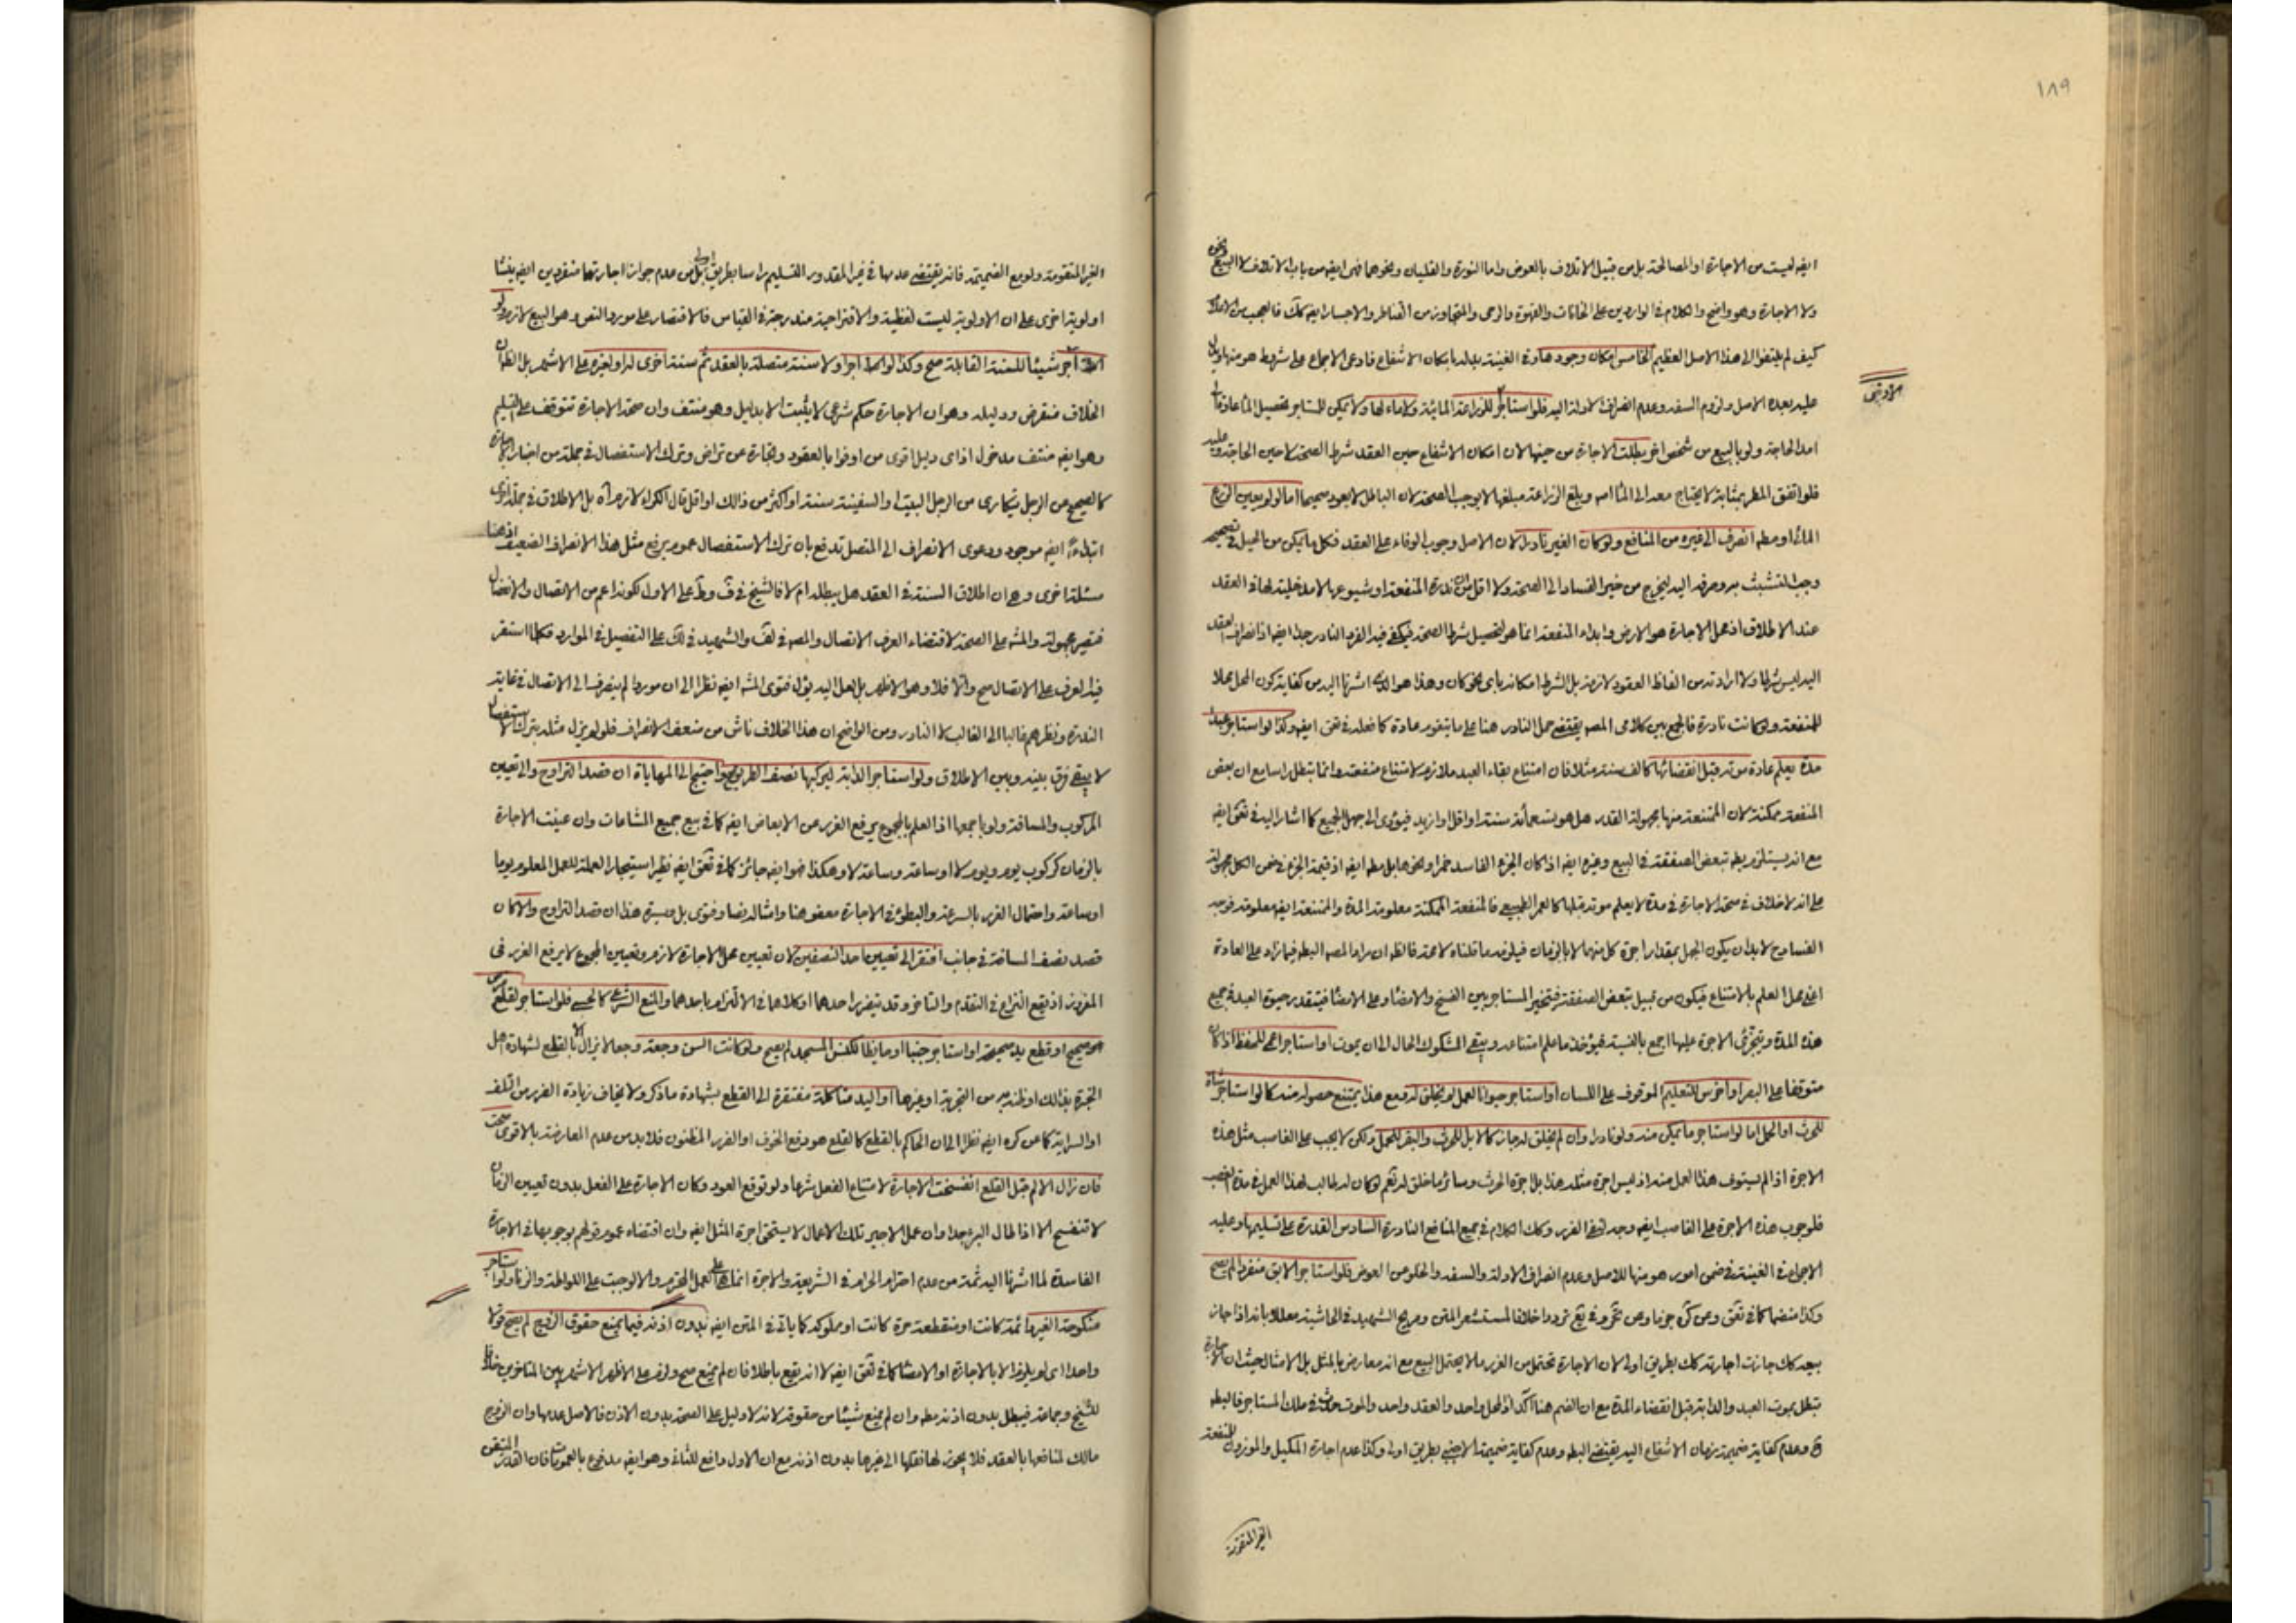 ١٨٩
ايضا ليست من الاجارة او المصالحة بل من قبيل الاتلاف بالعوض واما النورة والقليان ونحوهما فمن ايضا من باب الاتلاف لا البيع
ولا الاجارة وهو واضح والكلام في الواردين على الخانات والقهوة والرحى والمتجاوز من القناطر والاجسار ايضا كك فالعجب من
كيف لم يلتفتوا الى هذا الاصل العظيم الخامس امكان وجودها وفي الغنية بدله بامكان الانتفاع فادعى الاجماع على شروط هو منها
عليه بعده الاصل ولزوم السفه وعدم انصراف الادلة اليه فلو استاجر للزراعة المائية ولا ماء لها ولا يمكن للمستاجر تحصيل الماء عادة
امد الحاجة ولو بالبيع من شخص اخر بطلت الاجارة من حينها لان امكان الانتفاع حين العقد شرط الصحة لا حين الحاجة
فلو اتفق المطر بمثابة لا يحتاج معه الى الماء وبلغ الزراعة مبلغها لا يوجب الصحة لان الباطل لا يعود صحيحا اما لو لم يعين الزرع
انصرف الى غيره من المنافع ولو كان الغير نادرا لان الاصل وجوب الوفاء على العقد فكل ما يمكن من الحيل في تصحيحه
وجب التشبث به وصرفه اليه ليخرج من الفساد الى الصحة ندرة المنفعة او شيوعها لا مدخلية لها في العقد
عند الاطلاق اذ محل الاجارة هو الارض وابداء المنفعة انما هو لتحصيل شرط الصحة فيكفي فيه الفرد النادر جدا ايضا اذ انصراف العقد
اليه ليس شرطا ولا ارادته من الفاظ العقود لازمة بل الشرط امكانه باى نحو كان وهذا هو الذى اشرنا اليه من كفاية كون المحل محلا
للمنفعة ولو كانت نادرة فالجمع بين كلامى المصه يقتضى حمل النادر هنا على ما يتقوم عادة كما فعله في تعق ايضا وكذا لو استاجر عبدا
مدة يعلم عادة موته قبل انقضائها كالف سنة مثلا فان امتناع بقاء العبد ملازم لامتناع منفعته وانما بتطل راسا مع ان بعض
المنفعة ممكنة لان الممتنعة منها مجهولة القدر هل هو تسعمائة سنة او اقل او ازيد فيؤدى الى جهل الجميع كما اشار اليه في تعق ايضا
مع انه يستلزم تبعض الصفقة في البيع وغيره ايضا اذ كان الجزء الفاسد خمرا ونحوها بل مطه ايضا اذ قيمة الجزء في ضمن الكل مجهولة
على انه لا خلاف في صحة الاجارة في مدة لا يعلم موته قبلها كالعمر الطبيعى فالمنفعة الممكنة معلومة المدة والممتنعة ايضا معلومة
لا بد ان يكون الجهل بمقدار اجرة كل منهما لا بالزمان
اعنى محل العلم بالامتناع فيكون من قبيل تبعض الصفقة فتخير المستاجر بين الفسخ والامضاء وعلى الامضاء فيتقدر حيوة العبد في جميع
هذه المدة ويتجزى الاجرة عليها اجمع بالنسبة فيؤخذ ما علم امتناعه ويبقى المشكوك الحال الى ان يموت او استاجر اعمى للحفظ اذا كان
متوقفا على البصر او اخرس للتعليم الموقوف على اللسان او استاجر حيوانا لعمل لم يخلق له ومع هذا يمتنع حصوله منه كما لو استاجر شاة
للحرث او الحمل اما لو استاجر ما يمكن منه ولو نادرا وان لم يخلق له جاز كالابل للحرث والبقر للحمل ولكن لا يجب على الغاصب مثل هذه
الاجرة اذا لم يستوف هذا العمل منه اذ ليس اجرة مثله هذا بل اجرة الحرث وسائر ما خلق له نعم لو كان له طالب لهذا العمل في مدة الغصب
فلوجوب هذه الاجرة على الغاصب ايضا وجه لنفى الضرر وكك الكلام في جميع المنافع النادرة السادس القدرة على تسليمها وعليه
الاجماع في الغنية في ضمن امور هو منها للاصل وعدم انصراف الادلة والسفه والخلو من العوض فلو استاجر الابق منفردا لم يصح
وكذا منضما كما في تعق وعن كره جزما وعن تردد خلافا لمستشعر المتن وصريح الشهيد في الحاشية معللا بانه اذا جاز
بيعه كك جازت اجارته كك بطريق اولى لان الاجارة تحتمل من الغرر ما لا يحتمل البيع مع انه معارض بالمثل بل الامثال حيث ان الاجارة
تبطل بموت العبد والدابة قبل انقضاء المدة مع ان الضم هنا آكد اذ المحل واحد والعقد واحد والموت حدث في ملك المستاجر
وعدم كفاية ضميمة زمان الانتفاع اليه يقتضى البطه وعدم كفاية ضميمة الاجنبى بطريق اولى وكذا عدم اجارة المكيل والموزون للمنفعة
الغير المتقومة
الغير المتقومة ولو مع الضميمة فانه يقتضى عدمها في غير المقدور التسليم راسا بطريق اولى بل من عدم جواز اجارتها منفردين ايضا ينشا
اولوية اخرى على ان الاولوية ليست لفظية والاقتراحية مندرجة في القياس فالاقتصار على مورد النص وهو البيع لازم ولو
آجر شيئا للسنة القابلة صح وكذا لو اجر اولا سنة متصلة بالعقد ثم سنة اخرى له او لغيره على الاشهر بل الظاهر ان
الخلاف منقرض ودليله وهو ان الاجارة حكم شرعى لا يثبت الا بدليل وهو منتف وان صحة الاجارة تتوقف على التسليم
وهو ايضا منتف مدخول اذ اى دليل اقوى من اوفوا بالعقود وتجارة عن تراض وترك الاستفصال في جملة من اخبار الاجارة
كالصحيح عن الرجل يتكارى من الرجل البيت او السفينة سنة او اكثر من ذلك او اقل قال الكراء لازم بل الاطلاق في جملة اخرى
ايضا موجود ودعوى الانصراف الى المتصل تدفع بان ترك الاستفصال عموم يرفع مثل هذا الانصراف الضعيف اذ هنا
مسئلة اخرى وهى ان اطلاق السنة في العقد هل يبطله ام لا فالشيخ في ف وط على الاول لكونه اعم من الاتصال والانفصال
فتصير مجهولة والمشه على الصحة لاقتضاء العرف الاتصال والمصه في لف والشهيد في لك على التفصيل في الموارد فكلما استقر
فيه العرف على الاتصال صح والا فلا وهو الاظهر بل لعل اليه يؤل فتوى المشه ايضا نظرا الى ان موردا لم ينصرف الى الاتصال في غاية
الندرة ونظرهم غالبا الى الغالب لا النادر ومن الواضح ان هذا الخلاف ناش من ضعف الانصراف فلو لم يزل مثله بترك الاستفصال
لا يبقى فرق بينه وبين الاطلاق ولو استاجر الدابة ليركبها نصف الطريق صح واحتيج الى المهاياة ان قصد التراوح والى تعيين
المركوب والمسافة ولو باجمعها اذ العلم بالمجموع يرفع الغرر عن الابعاض ايضا كما في بيع جميع المشاعات وان عينت الاجارة
بالزمان كركوب يوم ويوم لا او ساعة وساعة لا وهكذا فهو ايضا جائز كما في تعق ايضا نظير استيجار العملة للعمل المعلوم يوما
او ساعة واحتمال الغرر بالسرعة والبطؤ في الاجارة معفو هنا وامثاله نصا وفتوى بل وسيرة هذا ان قصد التراوح والا كان
قصد نصف المسافة في جانب افتقر الى تعيين احد النصفين لان تعيين محل الاجارة لازم وتعيين المجموع لا يرفع الغرر في
المفروز اذ يقع النزاع في التقدم والتاخر وقد يتضرر احدهما او كلاهما في الالتزام باحدهما والمنع الشرعى كالحسى فلو استاجر لقلع ضرس
صحيح او قطع يد صحيحة او استاجر جنبا او حايضا لكنس المسجد لم يصح ولو كانت السن وجعة وجعا لا يزال الا بالقطع لشهادة اهل
الخبرة بذلك او ظنه به من التجربة او غيرها او اليد متاكلة مفتقرة الى القطع بشهادة ما ذكر ولا يخاف زيادة الضرر من التلف
او السراية كما عن كره ايضا نظرا الى ان الحاكم بالقطع كالقلع هو دفع الخوف او الضرر المظنون فلا بد من عدم المعارضة بالاقوى صحت
فان زال الالم قبل القلع انفسخت الاجارة لامتناع الفعل شرعا ولو توقع العود وكان الاجارة على الفعل بدون تعيين الزمان
لا تنفسخ الا اذا طال البرء جدا وان عمل الاجير تلك الاعمال لا يستحق اجرة المثل ايضا وان اقتضاه عموم قولهم بوجوبها في الاجارة
الفاسدة لما اشرنا اليه ثمة من عدم احترام الحرام في الشريعة والاجرة انما هى على العمل المحترم والا لوجبت على اللواطة والزنا ولو استاجر
منكوحة الغير دائمة كانت او منقطعة حرة كانت او مملوكة كما ياتى في المتن ايضا بدون اذنه فيما يمنع حقوق الزوج لم يصح قولا
واحدا اى لم يلزم الا بالاجازة او الامضاء كما في تعق ايضا لا انه يقع باطلا فان لم يمنع صح ولزم على الاظهر الاشهر بين المتاخرين خلافا
للشيخ وجماعة فيبطل بدون اذنه مطه وان لم يمنع شيئا من حقوقه لانه لا دليل على الصحة بدون الاذن فالاصل عدمها وان الزوج
مالك لمنافعها بالعقد فلا يجوز لها نقلها الى غيرها بدون اذنه مع ان الاول دافع للثانى وهو ايضا مدفوع بالعمومات فان القدر المتيقن